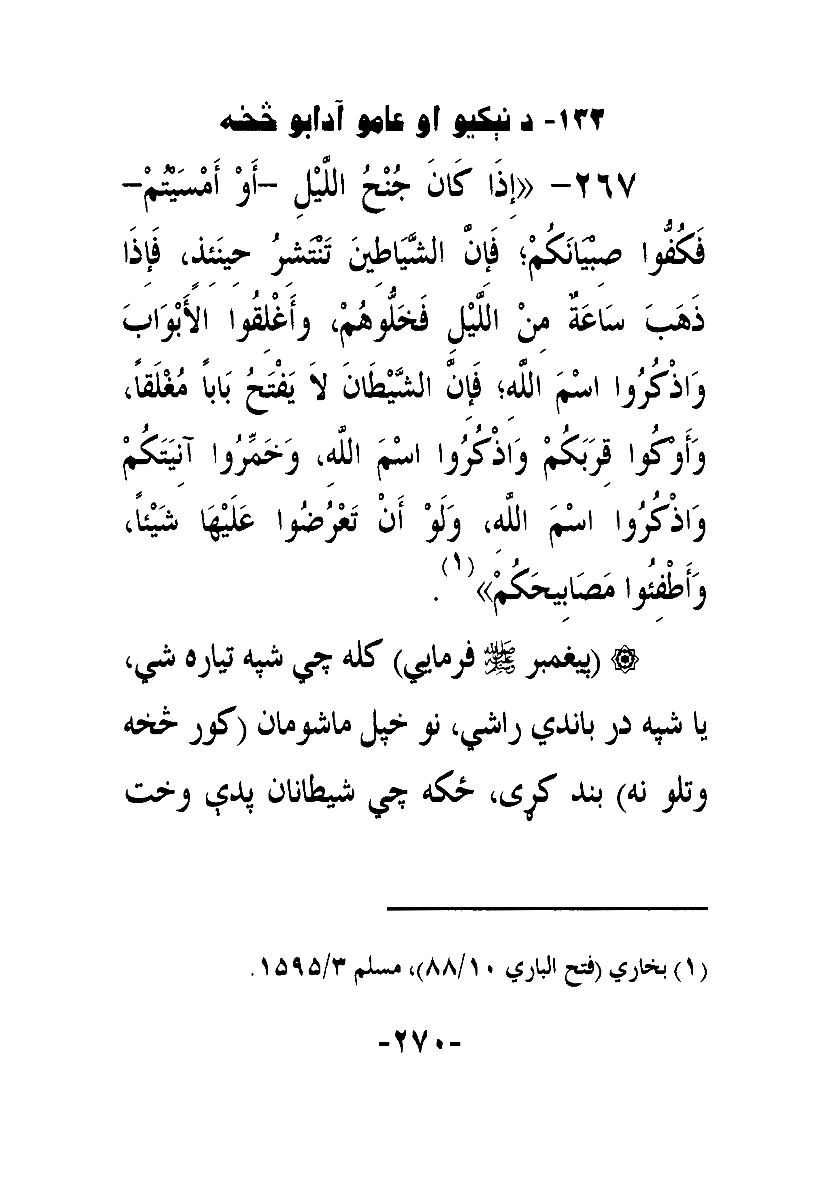 ١٣٣- د نېکیو او عامو آدابو څخه
٢٦٧- «إِذَا كَانَ جُنْحُ اللَّيْلِ –أَوْ أَمْسَيْتُمْ–
فَكُفُّوا صِبْيَانَكُمْ؛ فَإِنَّ الشَّيَاطِينَ تَنْتَشِرُ حِينَئِذٍ، فَإِذَا
ذَهَبَ سَاعَةٌ مِنْ اللَّيْلِ فَخَلُّوهُمْ، وأَغْلِقُوا الأَبْوَابَ
وَاذْكُرُوا اسْمَ اللَّهِ؛ فَإِنَّ الشَّيْطَانَ لاَ يَفْتَحُ بَاباً مُغْلَقاً،
وَأَوْكُوا قِرَبَكُمْ وَاذْكُرُوا اسْمَ اللَّهِ، وَخَمِّرُوا آنِيَتَكُمْ
وَاذْكُرُوا اسْمَ اللَّهِ، وَلَوْ أَنْ تَعْرُضُوا عَلَيْهَا شَيْئاً،
وَأَطْفِئُوا مَصَابِيحَكُمْ»(١).
۞ (پیغمبر ﷺ فرمایي) کله چي شپه تیاره شي،
یا شپه در باندي راشي، نو خپل ماشومان (کور څخه
وتلو نه) بند کړی، ځکه چي شیطانان پدې وخت
(١) بخاري (فتح الباري ٨٨/١٠)، مسلم ١٥٩٥/٣.
-٢٧٠-